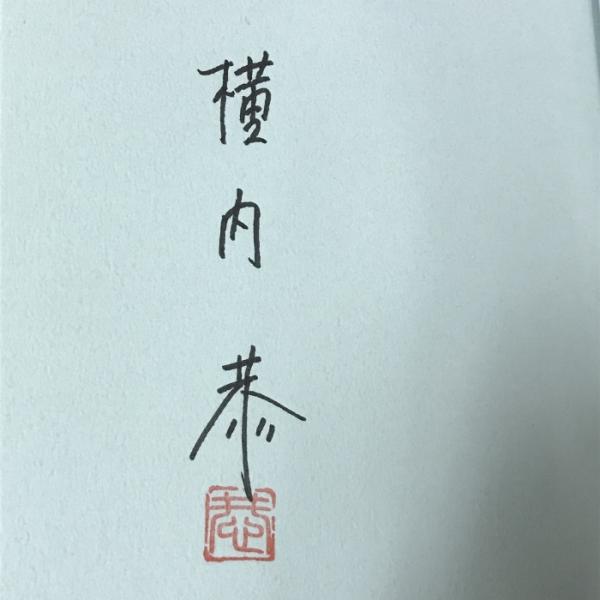 横内恭